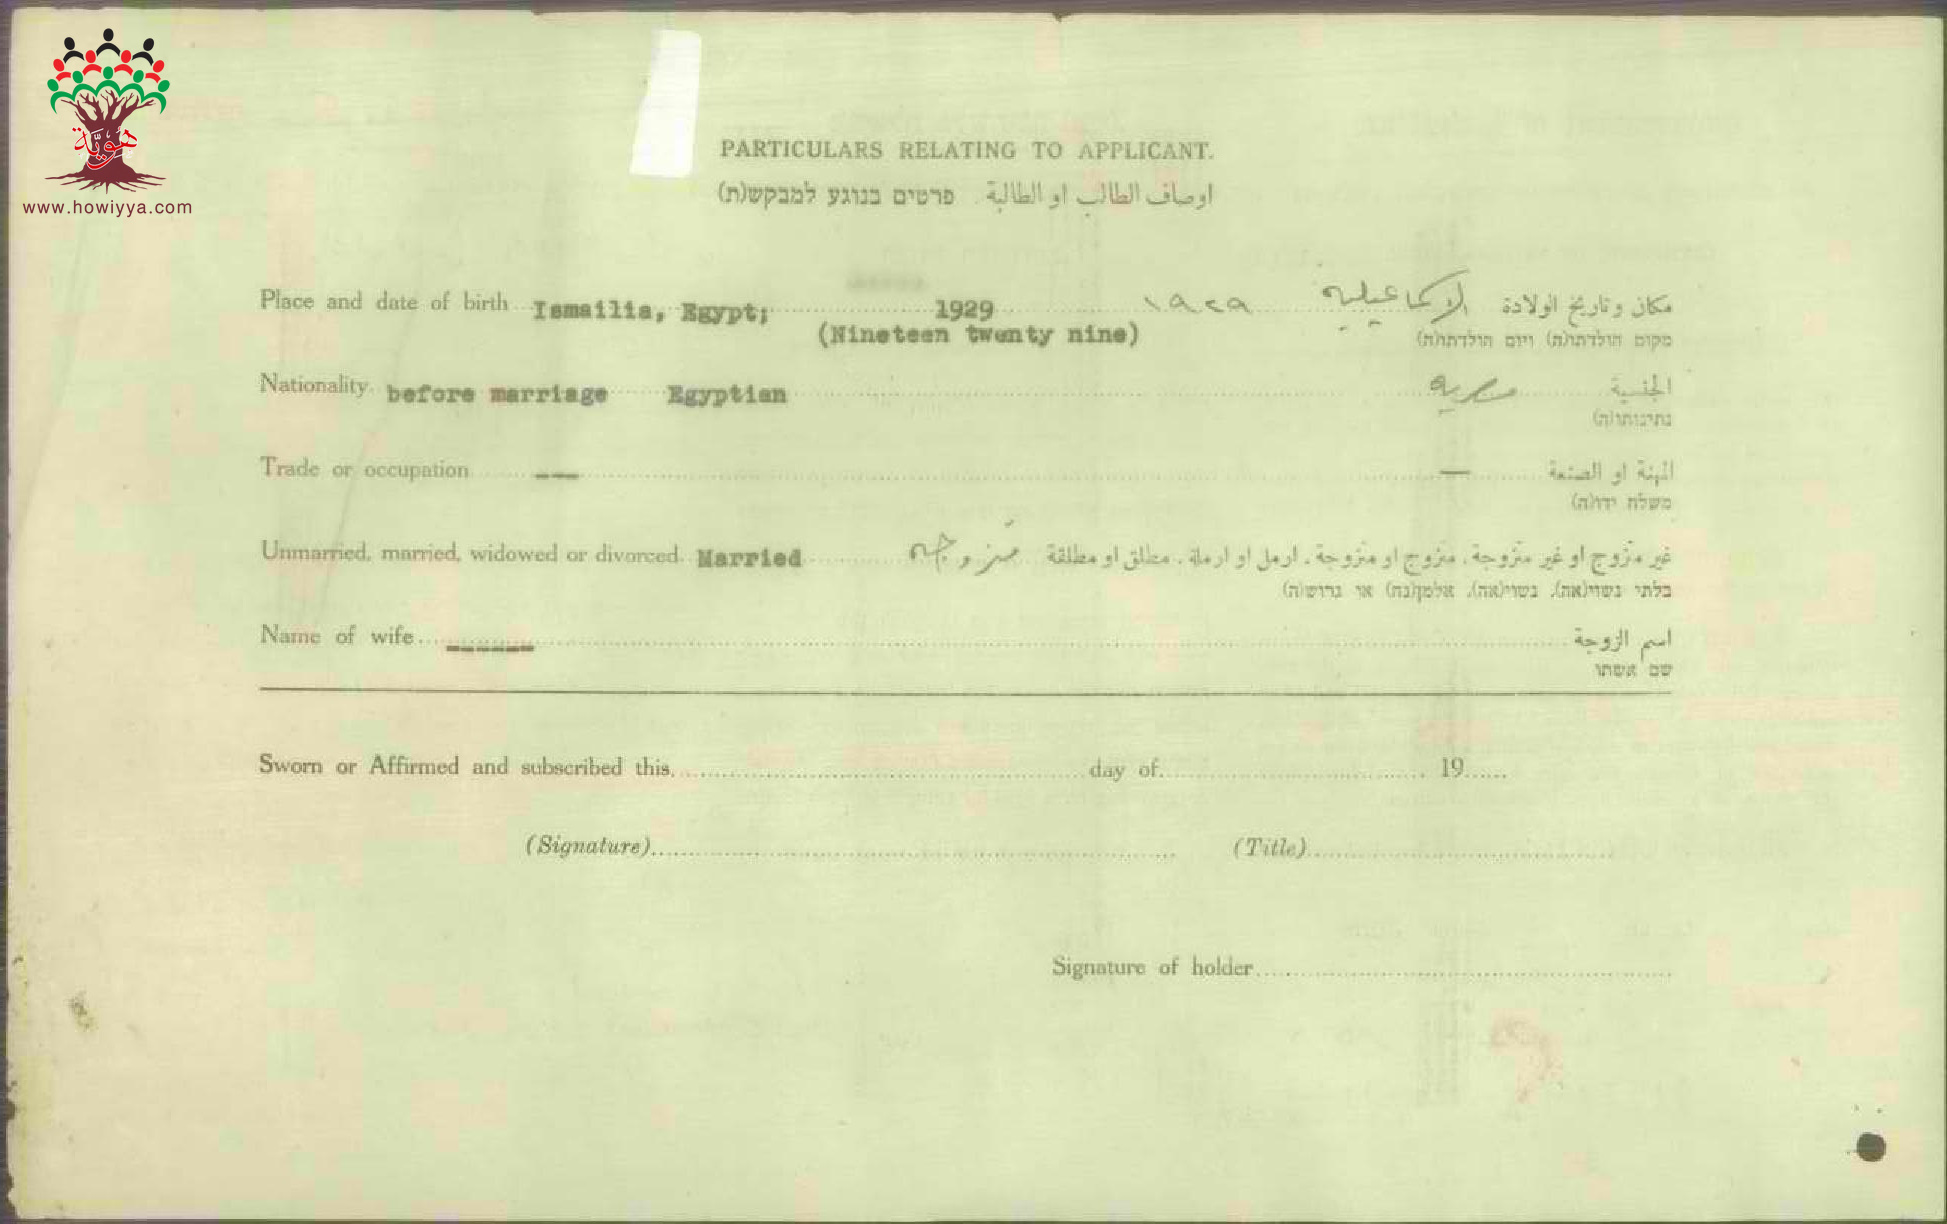 هويّة
www.howiyya.com
PARTICULARS RELATING TO APPLICANT.
اوصاف الطالب او الطالبة. פרטים בנוגע למבקש(ת)
Place and date of birth Ismailia, Egypt; 1929 ١٩٢٩ الاسماعيلية مكان وتاريخ الولادة
(Nineteen twenty nine) מקום הולדתו(ה) ויום הולדתו(ה)
Nationality before marriage Egyptian مصرية الجنسية
נתינותו(ה)
Trade or occupation --- — المهنة او الصنعة
משלח ידו(ה)
Unmarried, married, widowed or divorced. Married متزوجة غير متزوج او غير متزوجة، متزوج او متزوجة، ارمل او ارملة، مطلق او مطلقة
בלתי נשוי(אה), נשוי(אה), אלמן(נה) או גרוש(ה)
Name of wife ------ اسم الزوجة
שם אשתו
Sworn or Affirmed and subscribed this day of 19
(Signature) (Title)
Signature of holder